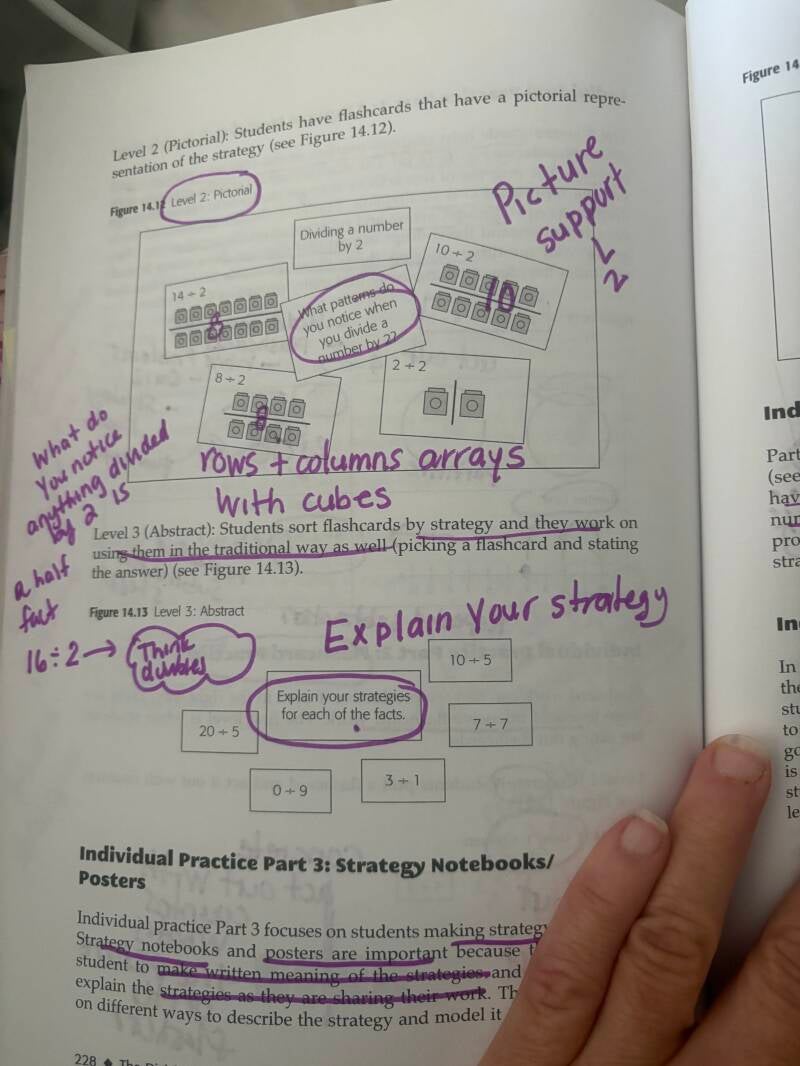 Level 2 (Pictorial): Students have flashcards that have a pictorial repre-
sentation of the strategy (see Figure 14.12).
Figure 14.12 Level 2: Pictorial
Picture
support
L
2
Dividing a number
by 2
10 ÷ 2
10
14 ÷ 2
8
What patterns do
you notice when
you divide a
number by 2?
8 ÷ 2
8
2 ÷ 2
rows + columns arrays
with cubes
What do
you notice
anything divided
by 2 is
a half
fact
16 ÷ 2 →
Think
doubles
Level 3 (Abstract): Students sort flashcards by strategy and they work on
using them in the traditional way as well (picking a flashcard and stating
the answer) (see Figure 14.13).
Figure 14.13 Level 3: Abstract
Explain your strategy
10 ÷ 5
Explain your strategies
for each of the facts.
20 ÷ 5
7 ÷ 7
0 ÷ 9
3 ÷ 1
Individual Practice Part 3: Strategy Notebooks/
Posters
Individual practice Part 3 focuses on students making strategy
Strategy notebooks and posters are important because
student to make written meaning of the strategies and
explain the strategies as they are sharing their work.
on different ways to describe the strategy and model it
228 ◆ The
Figure 14
Ind
Part
(see
hav
num
pro
stra
In
In
the
stu
to
go
is
st
le